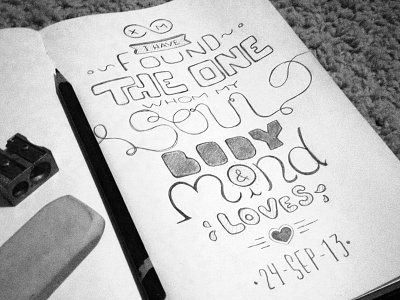 X M
I HAVE
FOUND
THE ONE
WHOM MY
SOUL
BODY
& Mind
LOVES
·24-SEP-13·